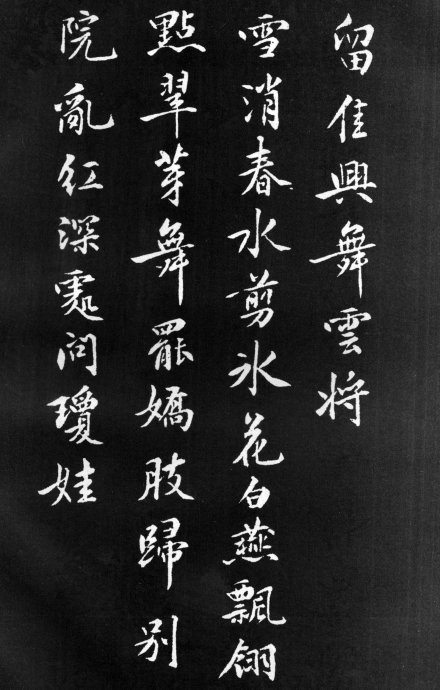 留佳興舞雲將
雪消春水剪冰花白燕飄翎
點翠芽舞罷嬌肢歸別
院亂紅深處問瓊娃